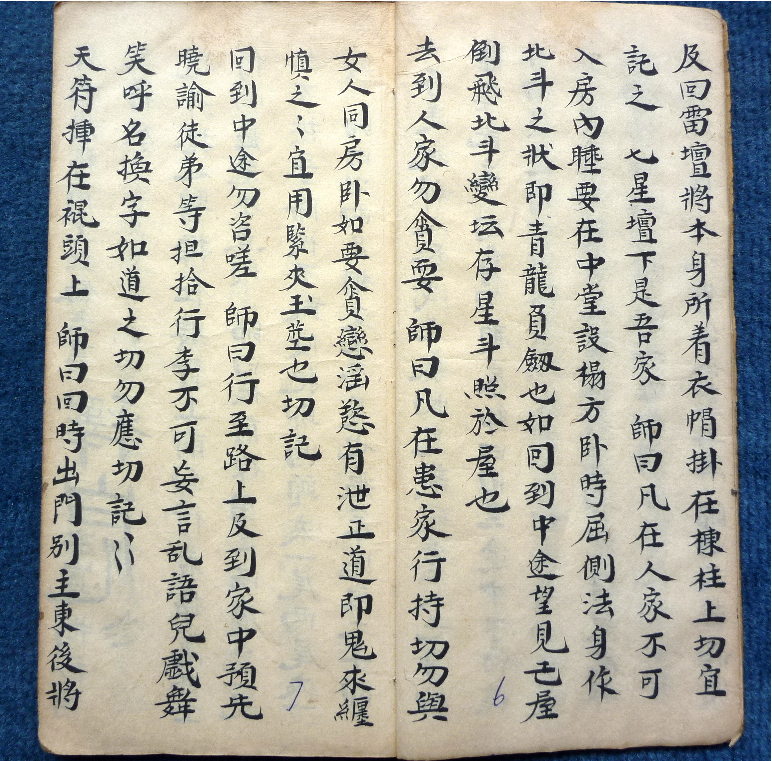 及回雷壇將本身所着衣帽掛在棟柱上切宜
託之 七星壇下是吾家 師曰凡在人家不可
入房內睡要在中堂設榻方卧時屈側法身作
北斗之狀即青龍負劔也如回到中途望見屋
倒飛北斗變坛存星斗照於屋也
去到人家勿貪耍 師曰凡在患家行持切勿與
6
女人同房卧如要貪戀滛慾有泄正道即鬼來纏
慎之〻宜用緊夾玉莖也切記
回到中途勿咨嗟 師曰行至路上及到家中預先
曉諭徒弟等担拾行李不可妄言乱語兒戲舞
笑呼名換字如道之切勿應切記〻
天符揷在裩頭上 師曰回時出門別主東後將
7